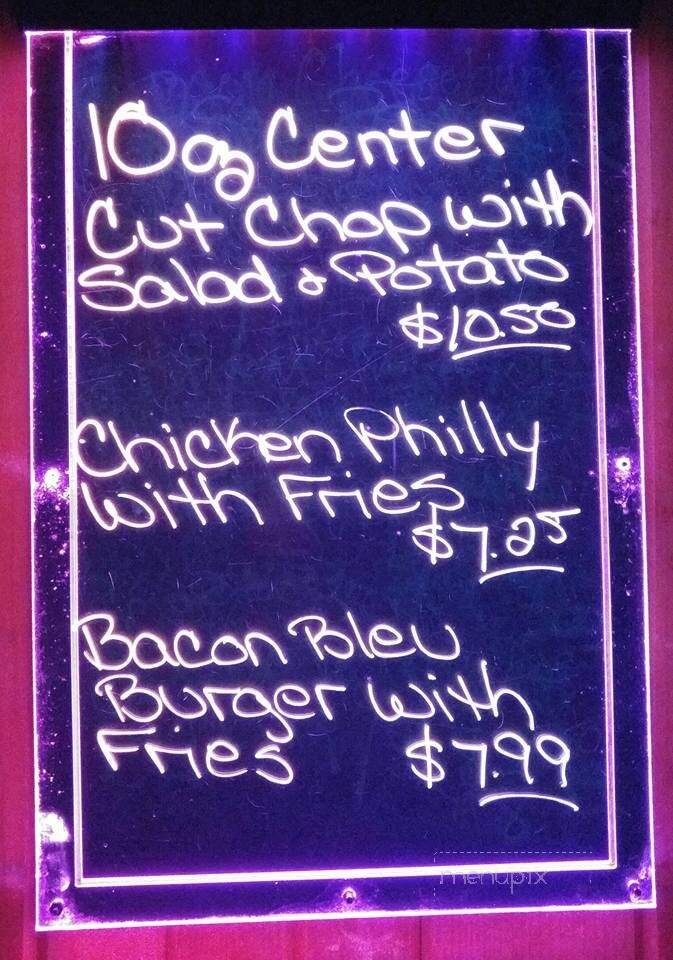 10oz Center
Cut Chop with
Salad & Potato
$10.50
Chicken Philly
with Fries
$7.25
Bacon Bleu
Burger with
Fries $7.99
menupix